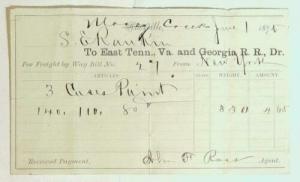 Mossy Creek June 1 187
S. E. Rankin
To East Tenn., Va. and Georgia R. R., Dr.
For Freight by Way Bill No. 27 From New York
ARTICLES WEIGHT AMOUNT
3 Cases Paint
140, 110, 80 330
Received Payment, John F. Ross Agent.